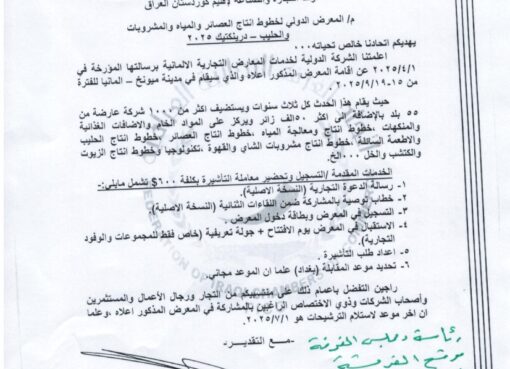 م/ المعرض الدولي لخطوط انتاج العصائر والمياه والمشروبات
والحليب – درينكتيك ٢٠٢٥
يهديكم اتحادنا خالص تحياته...
اعلمتنا الشركة الدولية لخدمات المعارض التجارية الالمانية برسالتها المؤرخة في
٢٠٢٥/٤/١ عن اقامة المعرض المذكور اعلاه والذي سيقام في مدينة ميونخ – المانيا للفترة
من ١٥-٢٠٢٥/٩/١٩.
حيث يقام هذا الحدث كل ثلاث سنوات ويستضيف اكثر من ١٠٠٠ شركة عارضة من
٥٥ بلد بالإضافة الى اكثر ٥٠الف زائر ويركز على المواد الخام والاضافات الغذائية
والمنكهات ،خطوط انتاج ومعالجة المياه ،خطوط انتاج العصائر ،خطوط انتاج الحليب
والاطعمة السائلة، خطوط انتاج مشروبات الشاي والقهوة ،تكنولوجيا وخطوط انتاج الزيوت
والكتشب والخل ...الخ.
الخدمات المقدمة /التسجيل وتحضير معاملة التأشيرة بكلفة ٦٠٠$ تشمل مايلي:-
١- رسالة الدعوة التجارية (النسخة الاصلية).
٢- خطاب توصية بالمشاركة ضمن اللقاءات الثنائية (النسخة الاصلية).
٣- التسجيل في المعرض وبطاقة دخول المعرض.
٤- الاستقبال في المعرض يوم الافتتاح + جولة تعريفية (خاص فقط للمجموعات والوفود
التجارية).
٥- اعداد طلب التأشيرة.
٦- تحديد موعد المقابلة (بغداد) علما ان الموعد مجاني.
راجين التفضل باعمام ذلك على منتسبيكم من التجار ورجال الأعمال والمستثمرين
وأصحاب الشركات وذوي الاختصاص الراغبين بالمشاركة في المعرض المذكور اعلاه ،وعلما
ان اخر موعد لاستلام الترشيحات هو ٢٠٢٥/٧/١.
-مع التقدير-